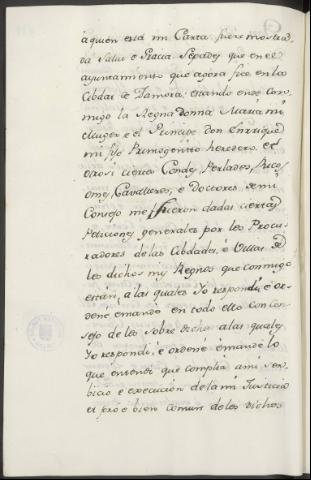 aquien esta mi Carta fuere mostra-
da Salus e Gracia Sepades que en el
ayuntamiento que agora fice en la
Cibdat de Zamora, estando ende con-
migo la Reyna Donna Maria mi
Muger e el Principe don Enrique
mi fijo Primogenito heredero, et
otrosi ciertos Condes, Perlados, Ricos
omes, Cavalleros, e Doctores de mi
Consejo me fueron dadas ciertas
Peticiones generales por los Procu-
radores de las Cibdades, é Villas de
los dichos mis Regnos que conmigo
están, a las quales Yo respondi, e or-
dene e mando en todo ello con Con-
sejo de los sobre dichos a las quales
Yo respondi, é ordené é mandé lo
que entendi que complia a mi ser-
bicio e execución de la mi Justicia
et pro e bien comun de los dichos